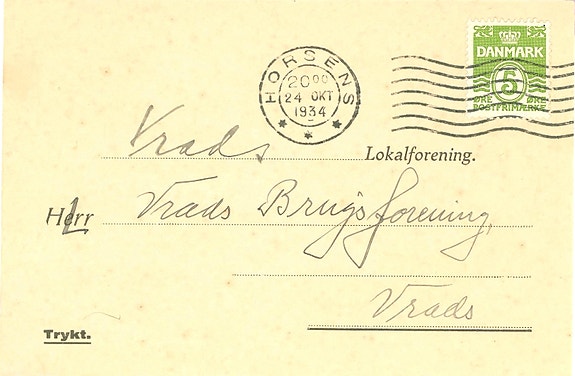 DANMARK
5
ØRE ØRE
POSTFRIMÆRKE
HORSENS
20⁰⁰
24 OKT
1934
Vrads Lokalforening.
Herr Vrads Brugsforening,
Vrads
Trykt.